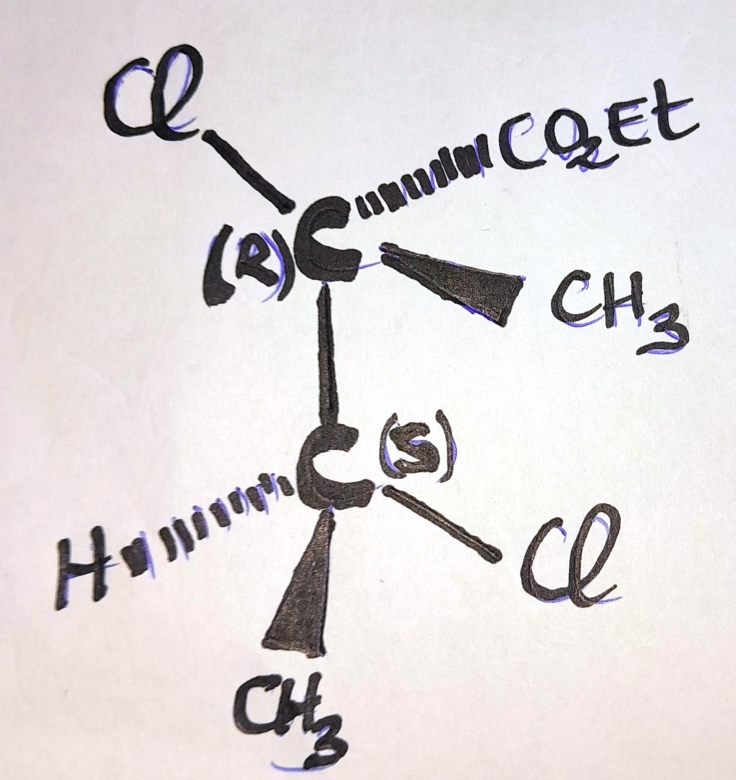 Cl
CO₂Et
(R) C
CH₃
C (S)
H
Cl
CH₃